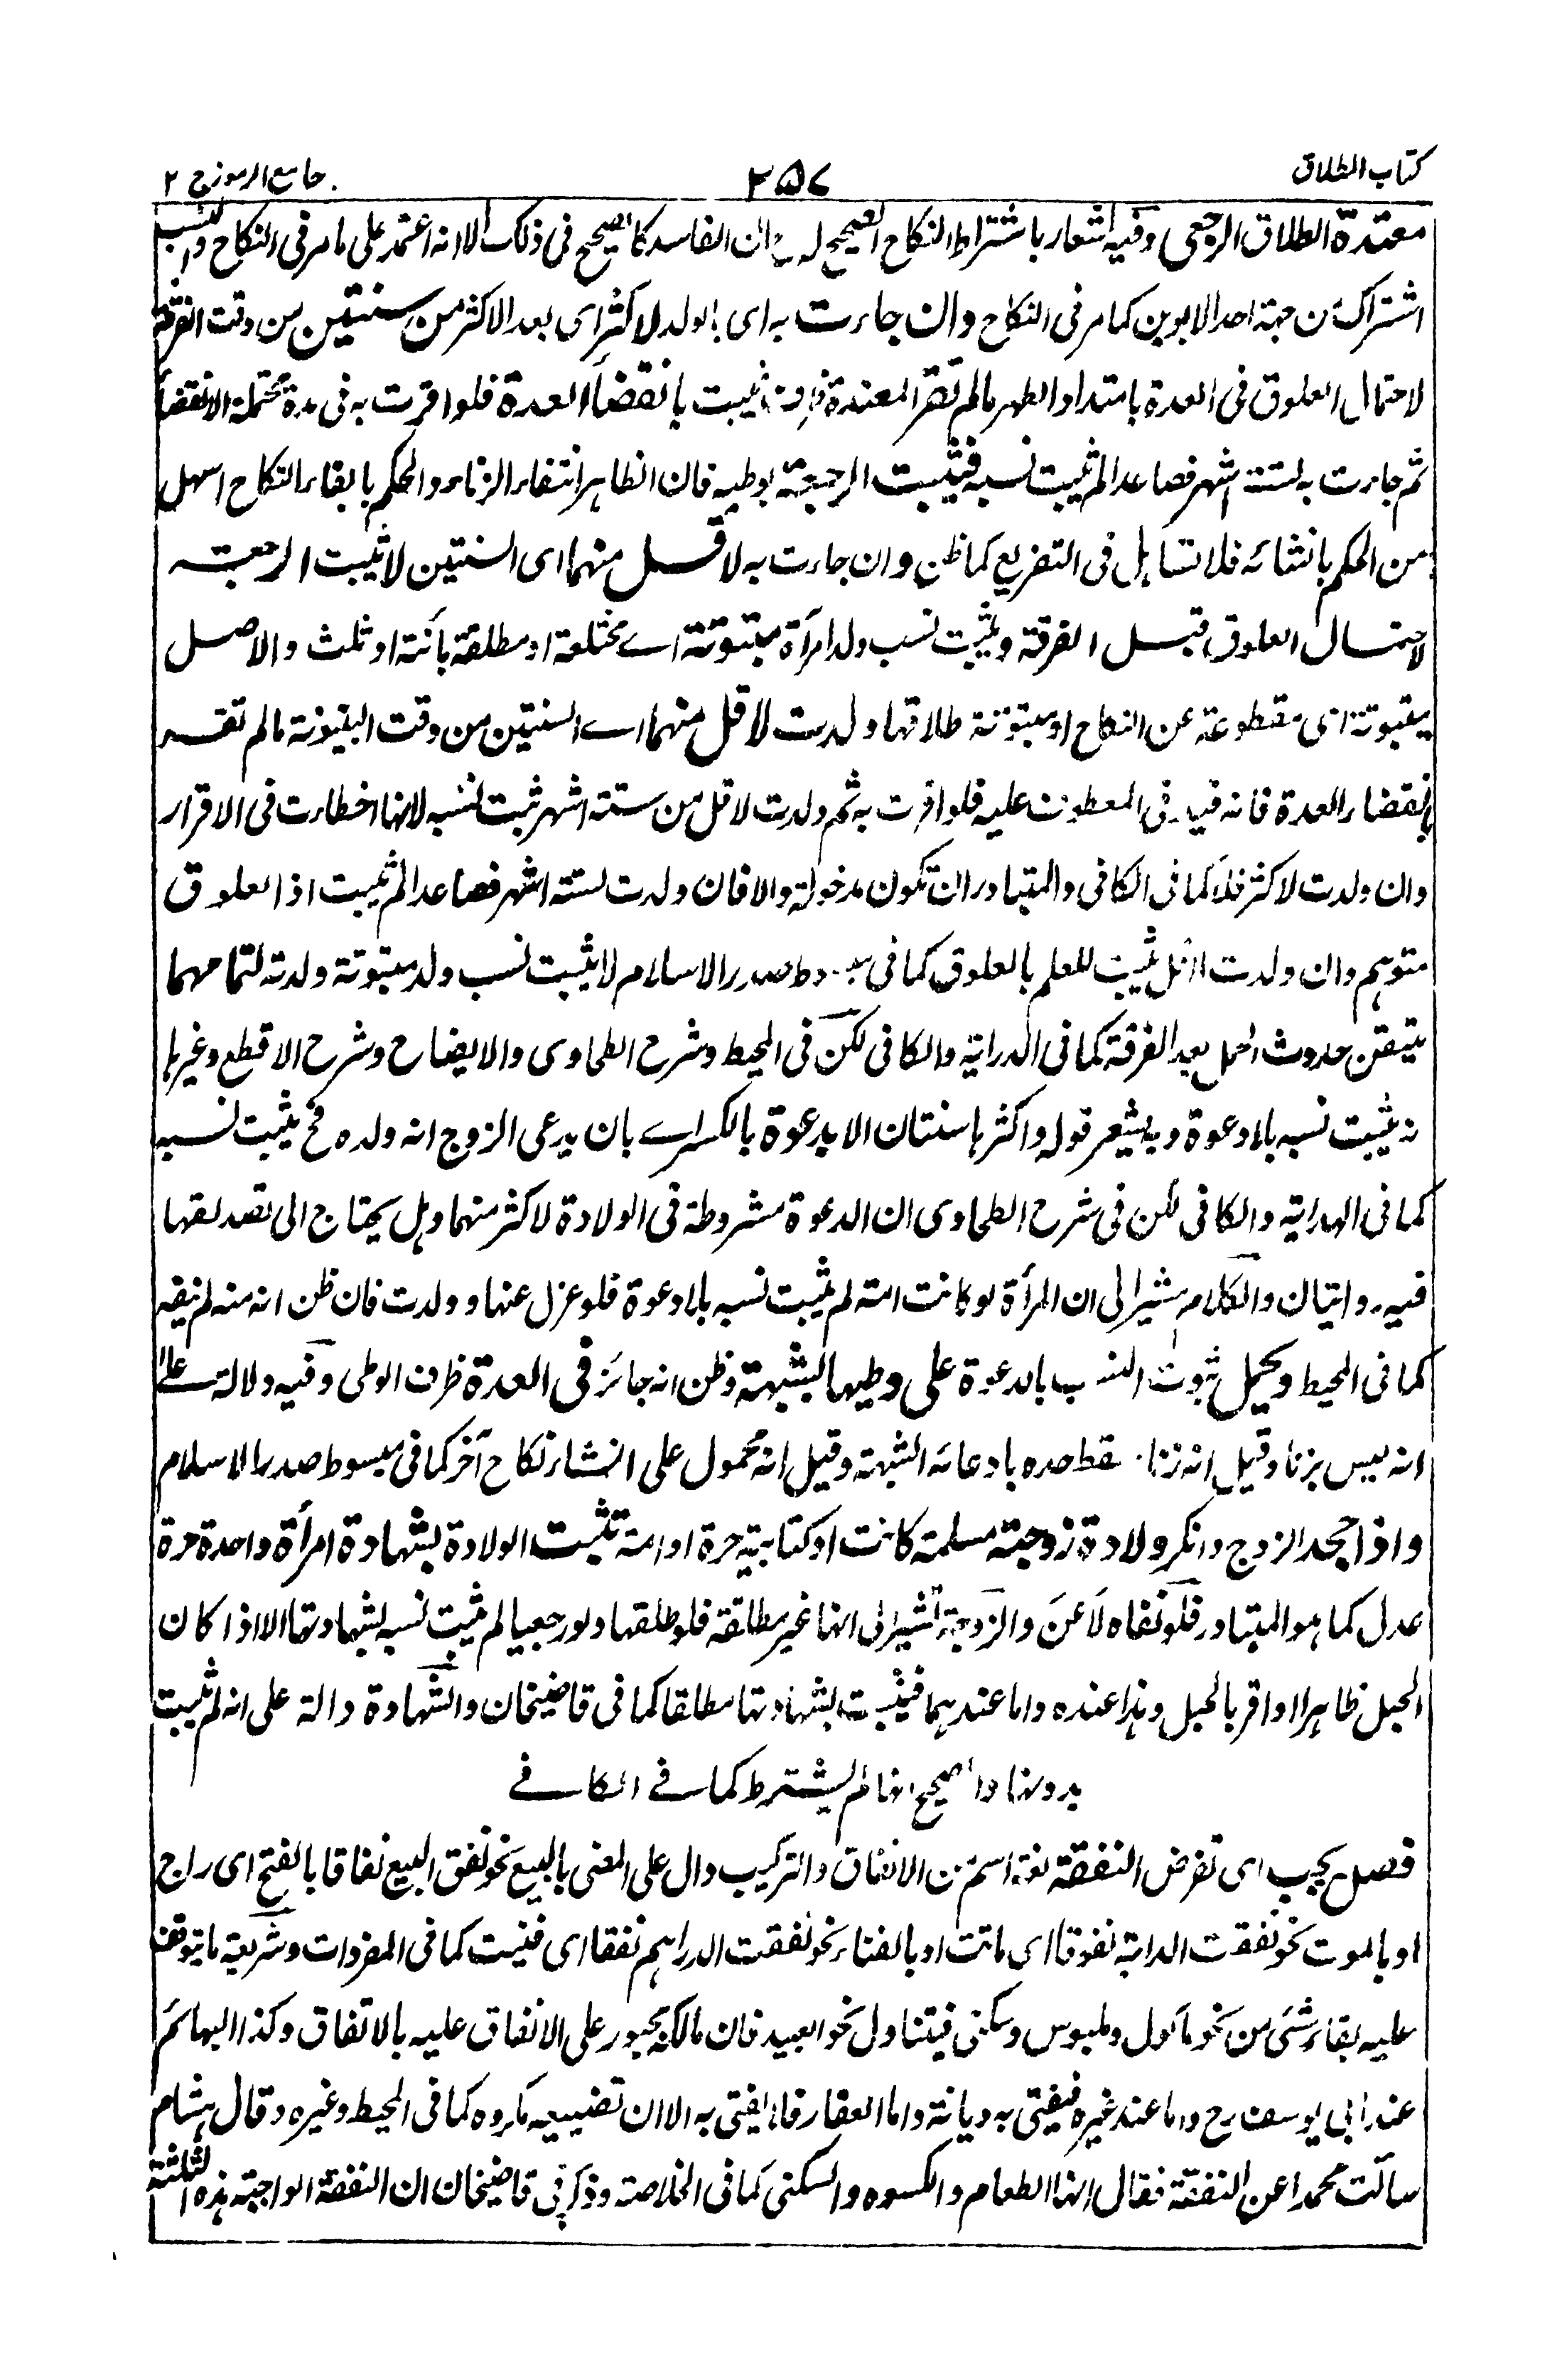 كتاب الطلاق
٢٥٧
جامع الرموز ج ٢
معتدة الطلاق الرجعي وفيه اشعار باشتراط النكاح الصحيح ان الفاسد كالصحيح فى ذلك الا انه اعتمد على ما مر فى النكاح والنسب
اشتراك من جهة احد الابوين كما مر فى النكاح وان جاءت به اى بالولد لاكثر اى بعد الاكثر من سنتين من وقت الفرقة
لاحتمال العلوق فى العدة بامتداد الطهر ما لم تقر المعتدة بانقضاء العدة فلو اقرت به فى مدة تحتمله الانقضاء
ثم جاءت به لستة اشهر فصاعدا لم يثبت نسبه فيثبت الرجعة بوطيه فان الظاهر انتفاء الزناء والحكم بابقاء النكاح اسهل
من الحكم بانشائه فلا تساهل فى التفريع كما ظن وان جاءت به لاقل منهما اى السنتين لا يثبت الرجعة
لاحتمال العلوق قبل الفرقة ويثبت نسب ولد امرأة مبتوتة اے مختلعة او مطلقة بائنة او ثلث والاصل
مبتوتة اى مقطوعة عن النكاح او مبتوتة طلاقها ولدت لاقل منهما اے السنتين من وقت البينونة ما لم تقر
بانقضاء العدة فانه قيد فى المعطوف عليه فلو اقرت به ثم ولدت لاقل من ستة اشهر ثبت نسبه لانها اخطاءت فى الاقرار
وان ولدت لاكثر فلا كما فى الكافى والمتبادر ان تكون مدخولة والا فان ولدت لستة اشهر فصاعدا لم يثبت اذ العلوق
متوهم وان ولدت لاقل يثبت للعلم بالعلوق كما فى مبسوط صدر الاسلام لا يثبت نسب ولد مبتوتة ولدته لتمامهما
لتيقن حدوث الحمل بعد الفرقة كما فى الهداية والكافى لكن فى المحيط وشرح الطحاوى والايضاح وشرح الاقطع وغيرها
انه يثبت نسبه بلا دعوة وبه يشعر قوله واكثرها سنتان الا بدعوة بالكسر اے بان يدعى الزوج انه ولده فح يثبت نسبه
كما فى الهداية والكافى لكن فى شرح الطحاوى ان الدعوة مشروطة فى الولادة لاكثر منهما وهل يحتاج الى تصديقها
فيه روايتان والكلام مشير الى ان المرأة لو كانت امته لم يثبت نسبه بلا دعوة فلو عزل عنها وولدت فان ظن انه منه لم ينفه
كما فى المحيط ويحمل ثبوت النسب بالدعوة على وطيها لشبهة وظن انه جائز فى العدة ظرف الوطى وفيه دلالة على
انه ليس بزنا وقيل انه زنا سقط حده بادعائه الشبهة وقيل انه محمول على انشاء نكاح آخر كما فى مبسوط صدر الاسلام
واذا جحد الزوج وانكر ولادة زوجة مسلمة كانت او كتابية حرة او امة تثبت الولادة بشهادة امرأة واحدة حرة
عدل كما هو المتبادر فلو نفاه لاعن والزوجة تشير الى انها غير مطلقة فلو طلقها ولو رجعيا لم يثبت نسبه بشهادتها الا اذا كان
الحبل ظاهرا او اقر بالحبل وهذا عنده واما عندهما فيثبت بشهادتها مطلقا كما فى قاضيخان والشهادة دالة على انه لم يثبت
بدونها والصحيح انها لم يشترط كما فے الكافے
فصل يجب اى تفرض النفقة لغة اسم من الانفاق والتركيب دال على المعنى بالبيع نحو نفق البيع نفاقا بالفتح اى راج
او بالموت نحو نفقت الدابة نفوقا اى ماتت او بالفناء نحو نفقت الدراهم نفقا اى فنيت كما فى المفردات وشريعة ما يتوقف
عليه بقاء شئ من نحو مأكول وملبوس وسكنى فيتناول نحو العبيد فان مالكه مجبور على الانفاق عليه بالاتفاق وكذا البهائم
عند ابى يوسف رح واما عند غيره فيفتى به ديانة واما العقار فلا يفتى به الا ان تضييعه مكروه كما فى المحيط وغيره وقال هشام
سالت محمدا عن النفقة فقال انها الطعام والكسوه والسكنى كما فى الخلاصة وذكر فى قاضيخان ان النفقة الواجبة هذه الثلثة